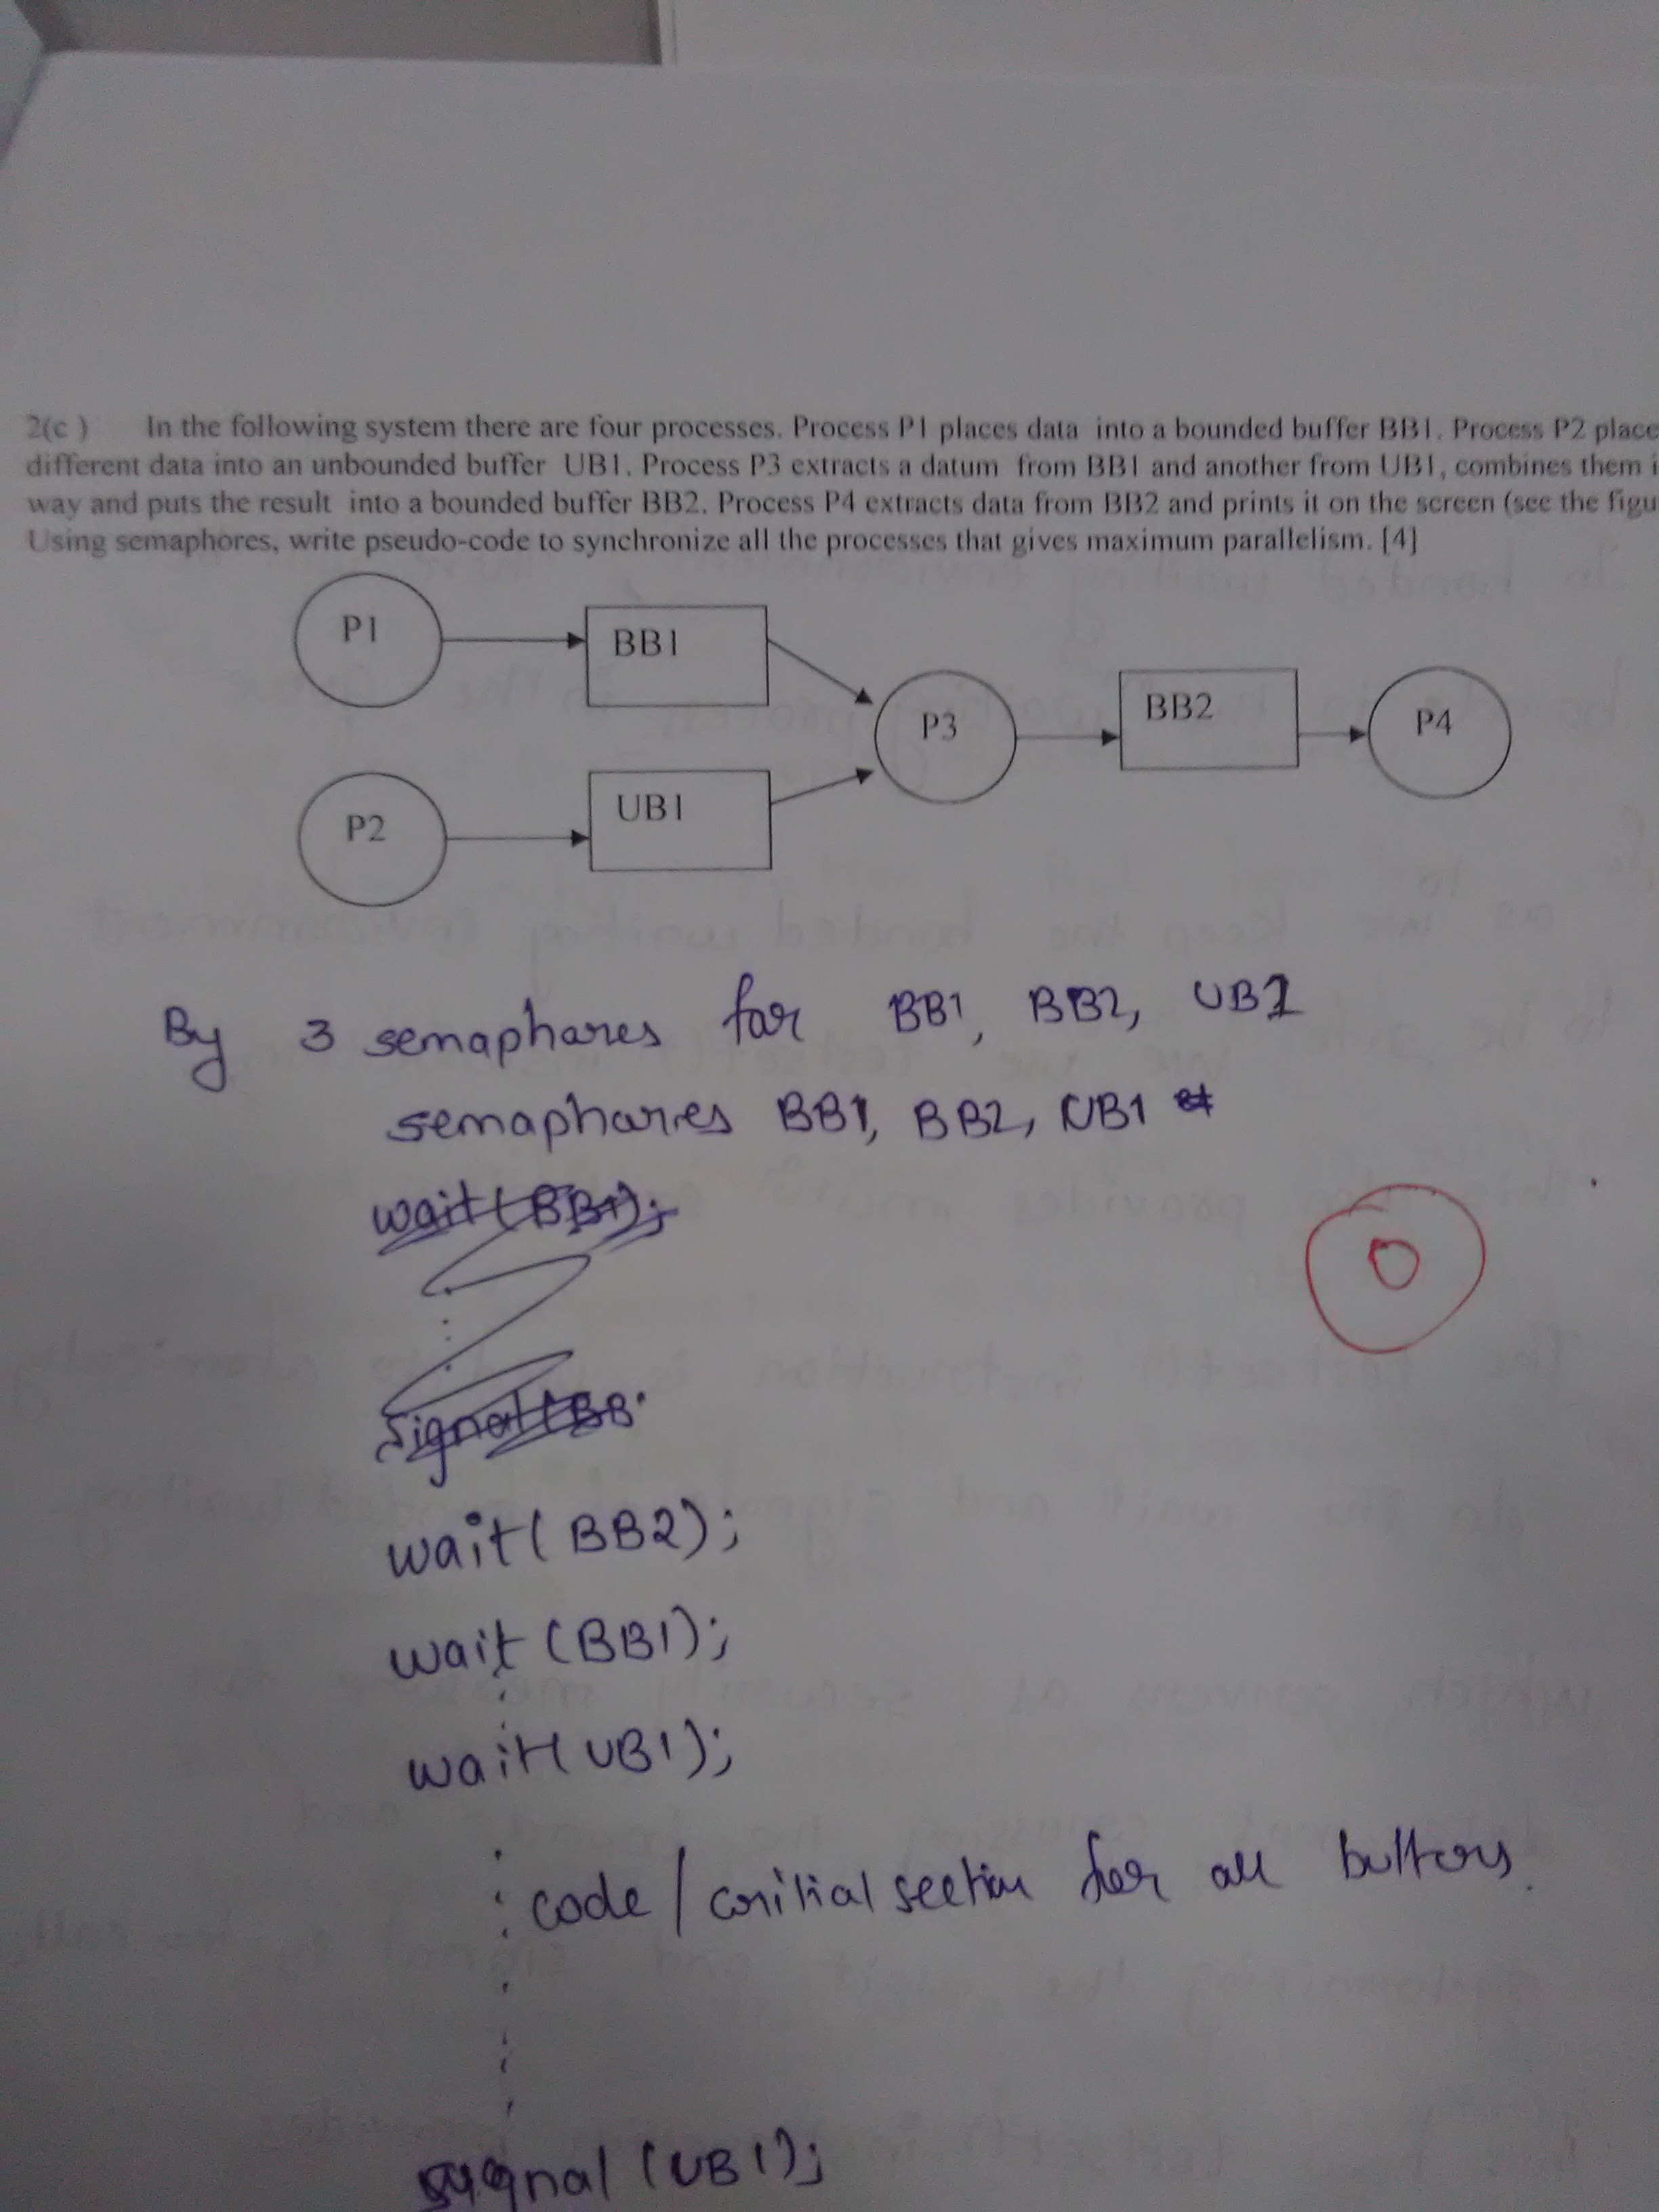 2(c ) In the following system there are four processes. Process P1 places data into a bounded buffer BB1. Process P2 place
different data into an unbounded buffer UB1. Process P3 extracts a datum from BB1 and another from UB1, combines them i
way and puts the result into a bounded buffer BB2. Process P4 extracts data from BB2 and prints it on the screen (see the figu
Using semaphores, write pseudo-code to synchronize all the processes that gives maximum parallelism. [4]
P1
BB1
P3
BB2
P4
P2
UB1
By 3 semaphares for BB1, BB2, UB1
semaphares BB1, BB2, UB1
wait(BB1);
0
signal(BB
wait(BB2);
wait(BB1);
wait(UB1);
code/critial section for all buffers.
signal(UB1);